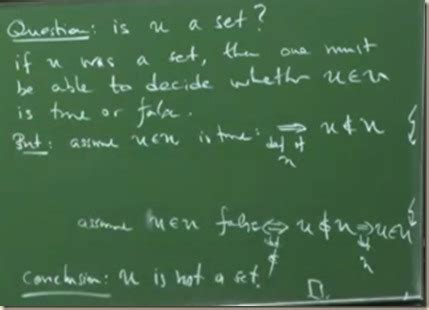 Question: is u a set?
if u was a set, then one must
be able to decide whether u∈u
is true or false.
But: assume u∈u is true: ⟹ u∉u {
def of
u
assume u∈u false ⟺ u∉u ⟹ u∈u {
def def
∉ u
Conclusion: u is not a set.
□.